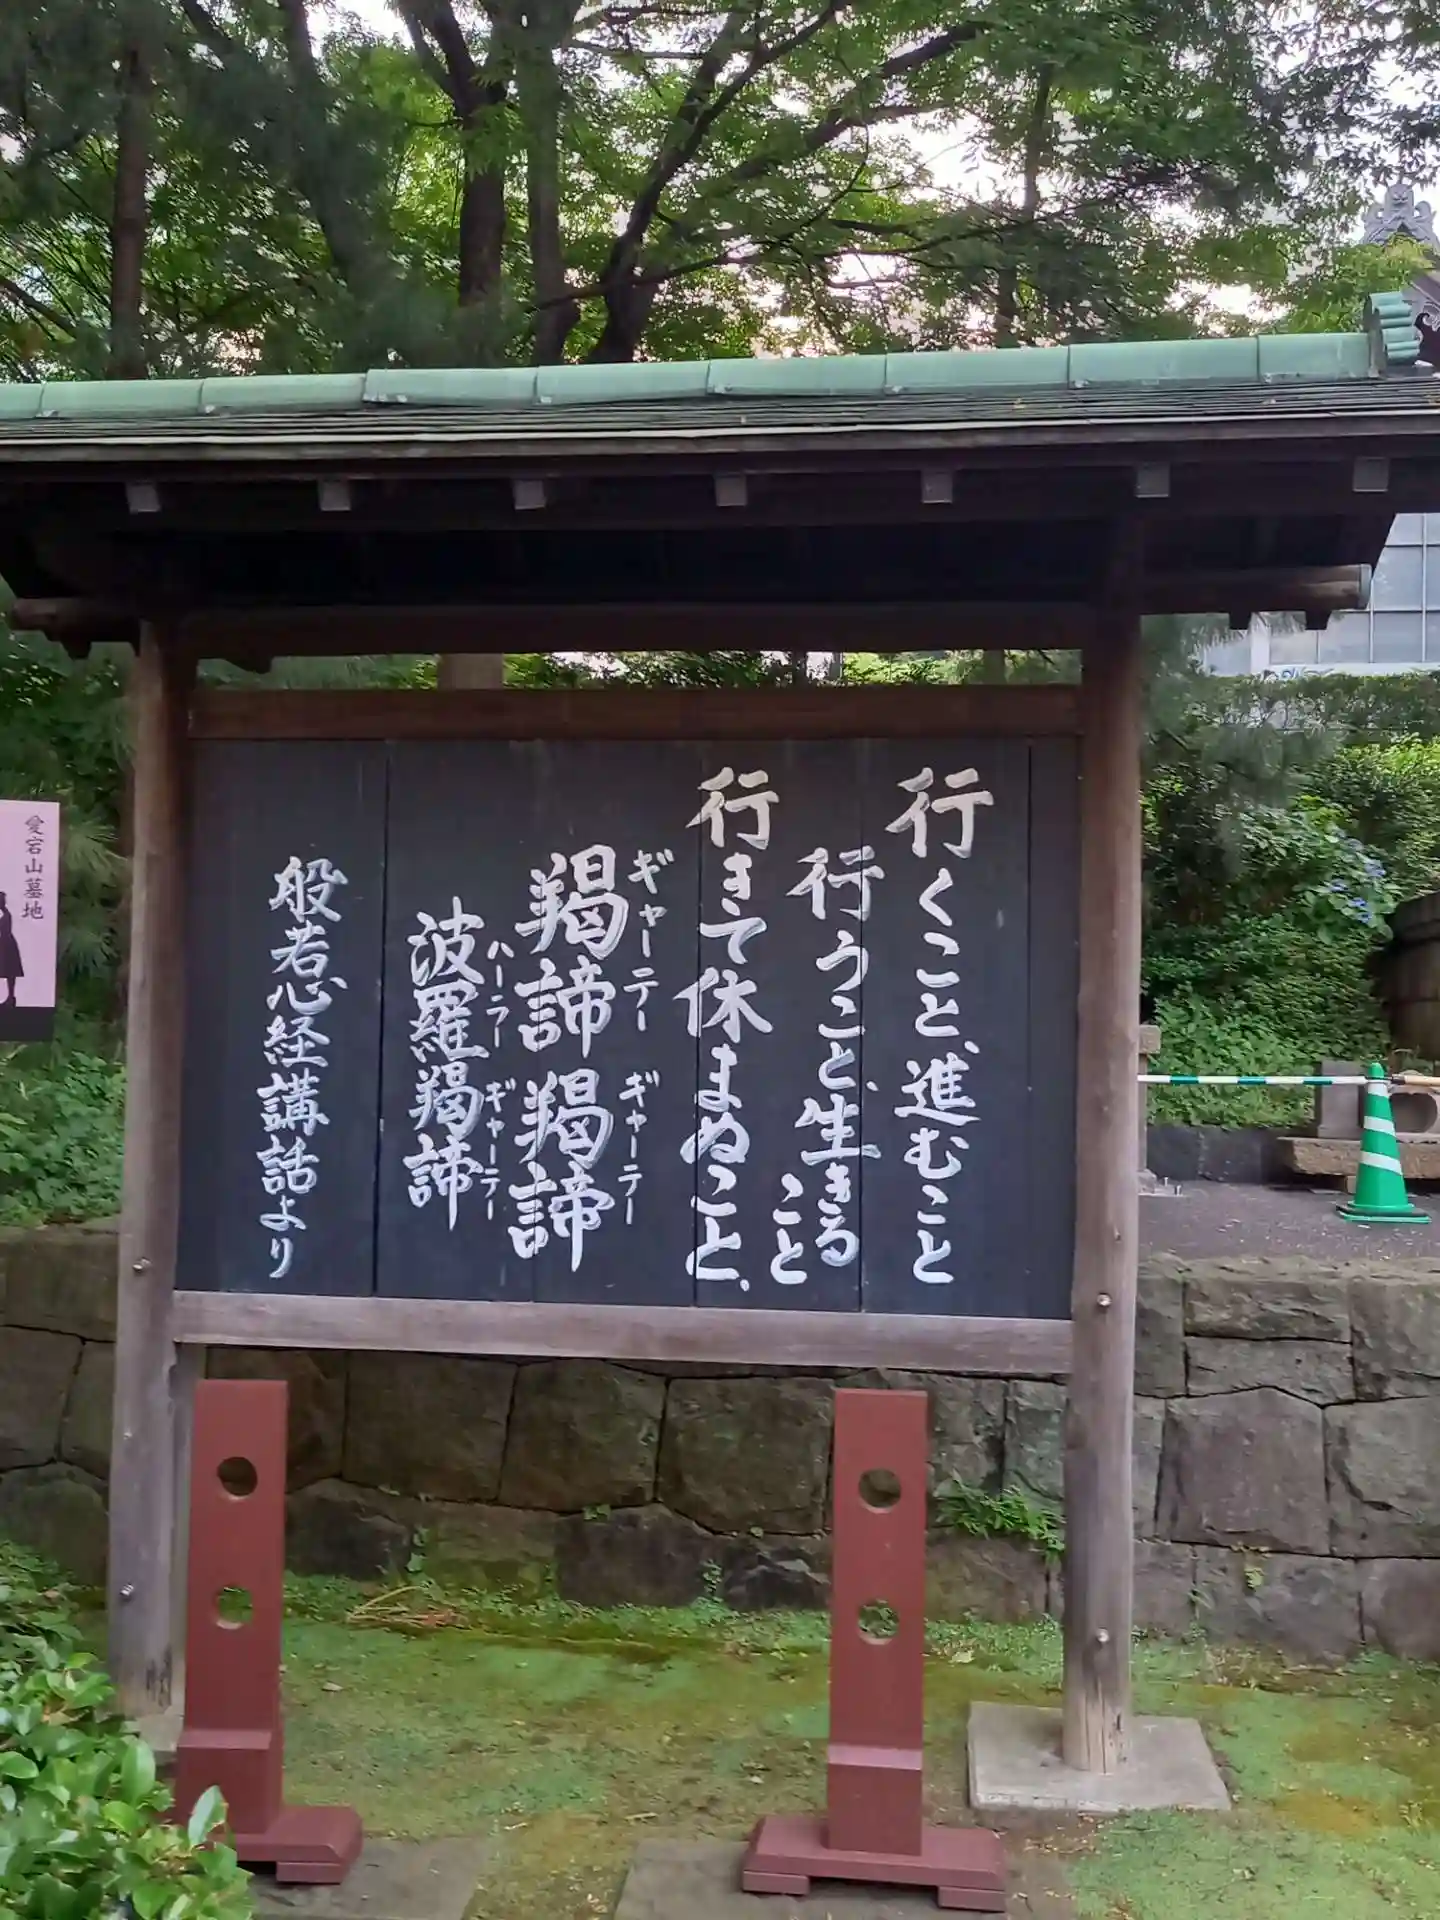 行くこと、進むこと
行うこと、生きること
行きて休まぬこと、
ギャーテー ギャーテー
羯諦羯諦
ハーラー ギャーテー
波羅羯諦
般若心経講話より
愛宕山墓地